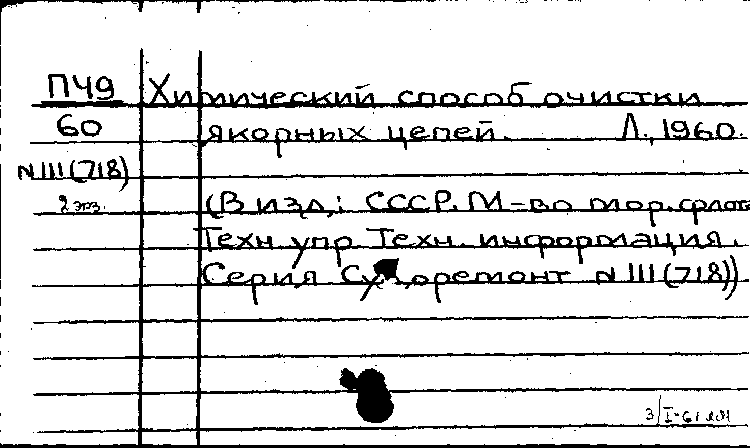 ПЧ9 Химический способ очистки
60 якорных цепей. Л., 1960.
N III (718)
2 экз. (В изд.: СССР. М-во мор. флота
Техн. упр. Техн. информация.
Серия Судоремонт N III (718))
3/I-61